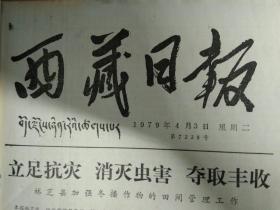 西藏日報
བོད་ལྗོངས་ཉིན་རེའི་ཚགས་པར
1979年4月3日 星期二
立足抗灾 消灭虫害 夺取丰收
林芝县加强冬播作物的田间管理工作